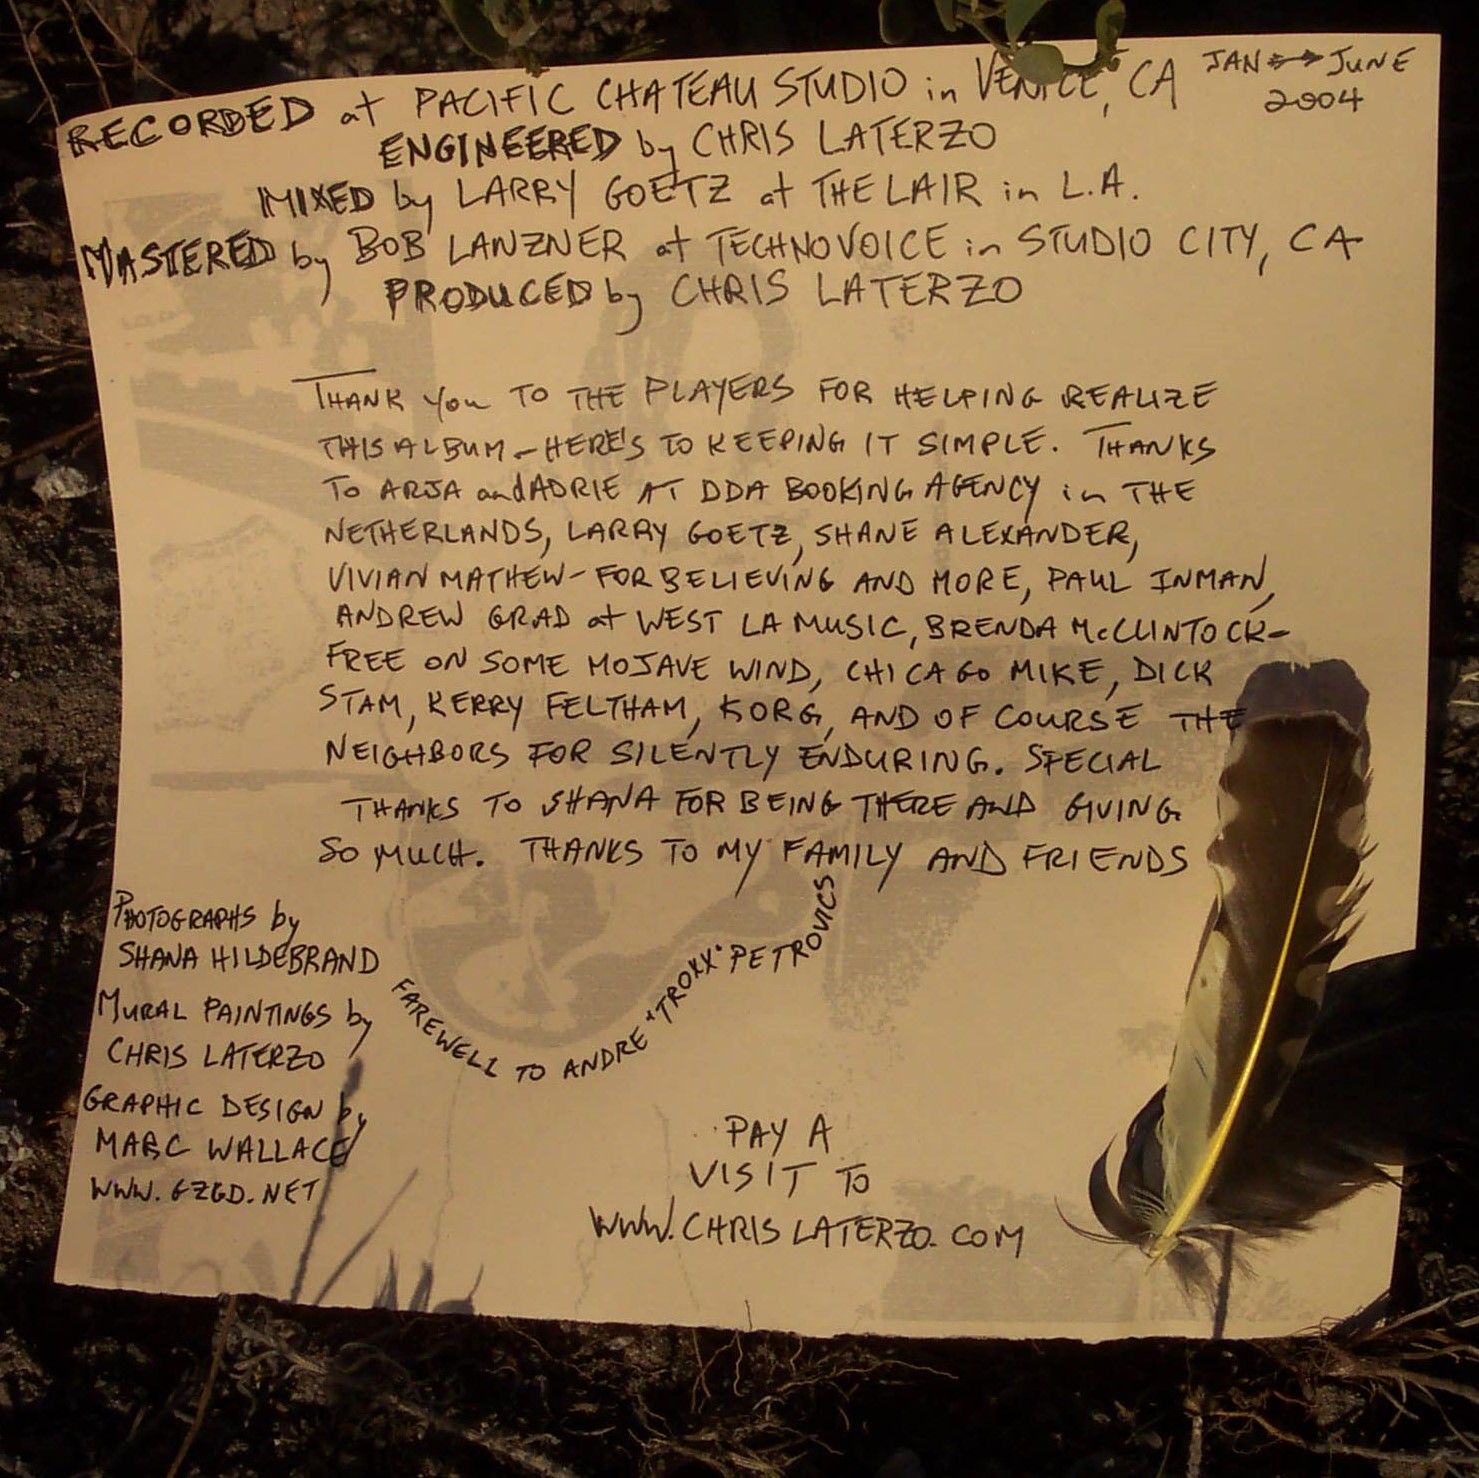 RECORDED at PACIFIC CHATEAU STUDIO in VENICE, CA JAN ↔ JUNE 2004
ENGINEERED by CHRIS LATERZO
MIXED by LARRY GOETZ at THE LAIR in L.A.
MASTERED by BOB LANZNER at TECHNOVOICE in STUDIO CITY, CA
PRODUCED by CHRIS LATERZO
THANK you TO THE PLAYERS FOR HELPING REALIZE
THIS ALBUM – HERE'S TO KEEPING IT SIMPLE. THANKS
TO ARJA and ADRIE AT DDA BOOKING AGENCY in THE
NETHERLANDS, LARRY GOETZ, SHANE ALEXANDER,
VIVIAN MATHEW – FOR BELIEVING AND MORE, PAUL INMAN,
ANDREW GRAD at WEST LA MUSIC, BRENDA McCLINTOCK –
FREE ON SOME MOJAVE WIND, CHICAGO MIKE, DICK
STAM, KERRY FELTHAM, KORG, AND OF COURSE THE
NEIGHBORS FOR SILENTLY ENDURING. SPECIAL
THANKS TO SHANA FOR BEING THERE AND GIVING
SO MUCH. THANKS TO MY FAMILY AND FRIENDS
FAREWELL TO ANDRE "TROXX" PETROVICS
PHOTOGRAPHS by
SHANA HILDEBRAND
MURAL PAINTINGS by
CHRIS LATERZO
GRAPHIC DESIGN by
MARC WALLACE
WWW.GZGD.NET
PAY A
VISIT TO
WWW.CHRISLATERZO.COM